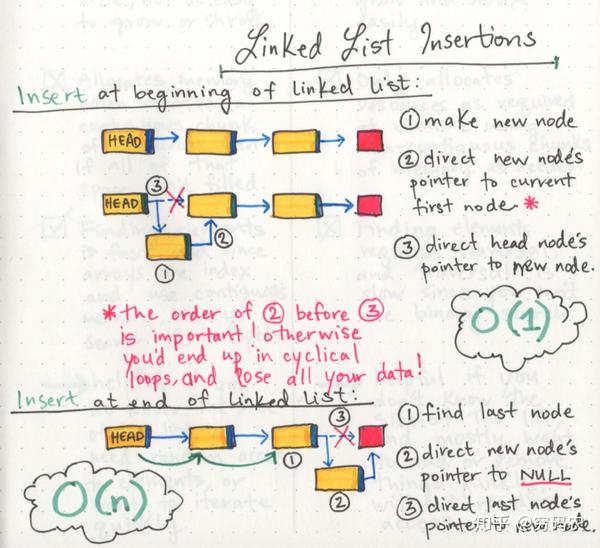 Linked List Insertions
Insert at beginning of linked list:
HEAD
① make new node
② direct new node's
pointer to current
first node. *
③ direct head node's
pointer to new node.
HEAD
③
②
①
O(1)
* the order of ② before ③
is important! otherwise
you'd end up in cyclical
loops, and lose all your data!
Insert at end of linked list:
HEAD
③
①
②
O(n)
① find last node
② direct new node's
pointer to NULL
③ direct last node's
pointer to new node.
知乎